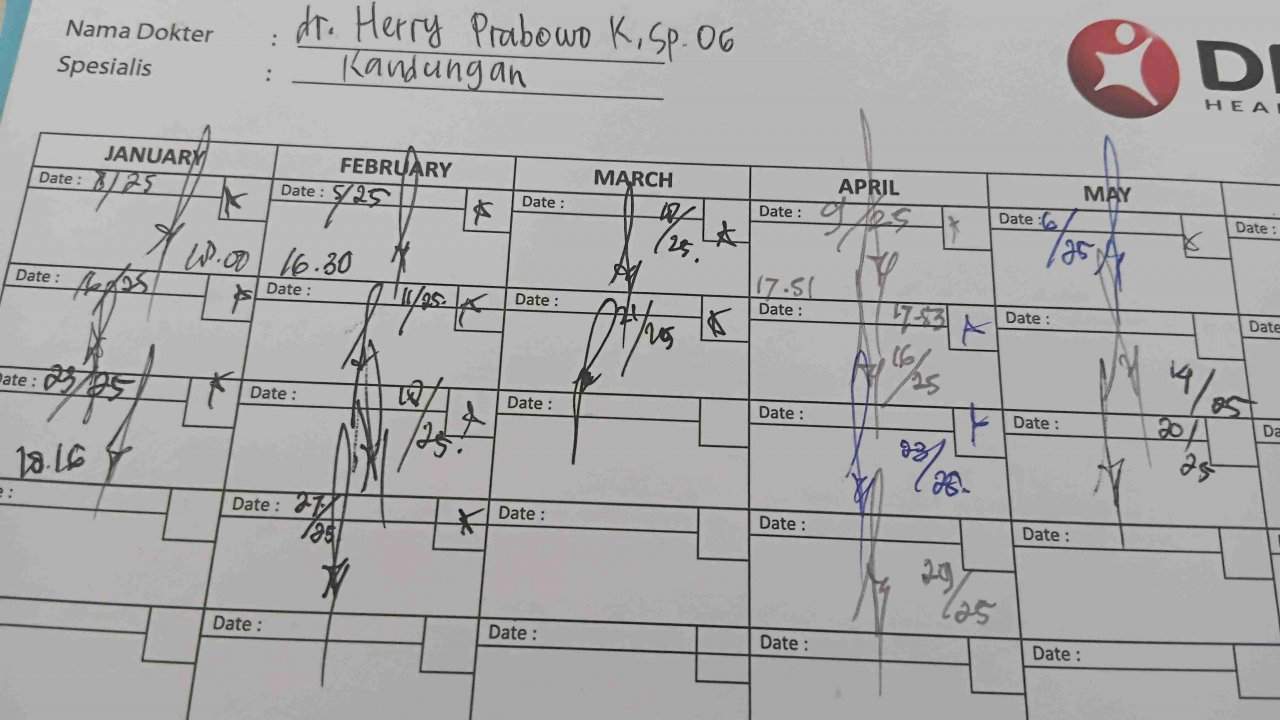 Nama Dokter : dr. Herry Prabowo K, Sp. OG
Spesialis : Kandungan
JANUARY FEBRUARY MARCH APRIL MAY
Date : 8/25 Date : 5/25 Date : 25. Date : 9/25 Date : 6/25 Date :
18.00 16.30 17.51
Date : /25 Date : 11/25. Date : Date : 17.53 Date : Date
16/25 14/25
Date : 23/25 Date : 25. Date : Date : Date : 20/25
18.16 23/25.
Date : 27/25 Date : Date : Date :
29/25
Date : Date : Date : Date :